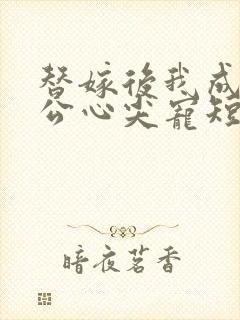 替嫁後我成
公心尖寵短
暗夜茗香